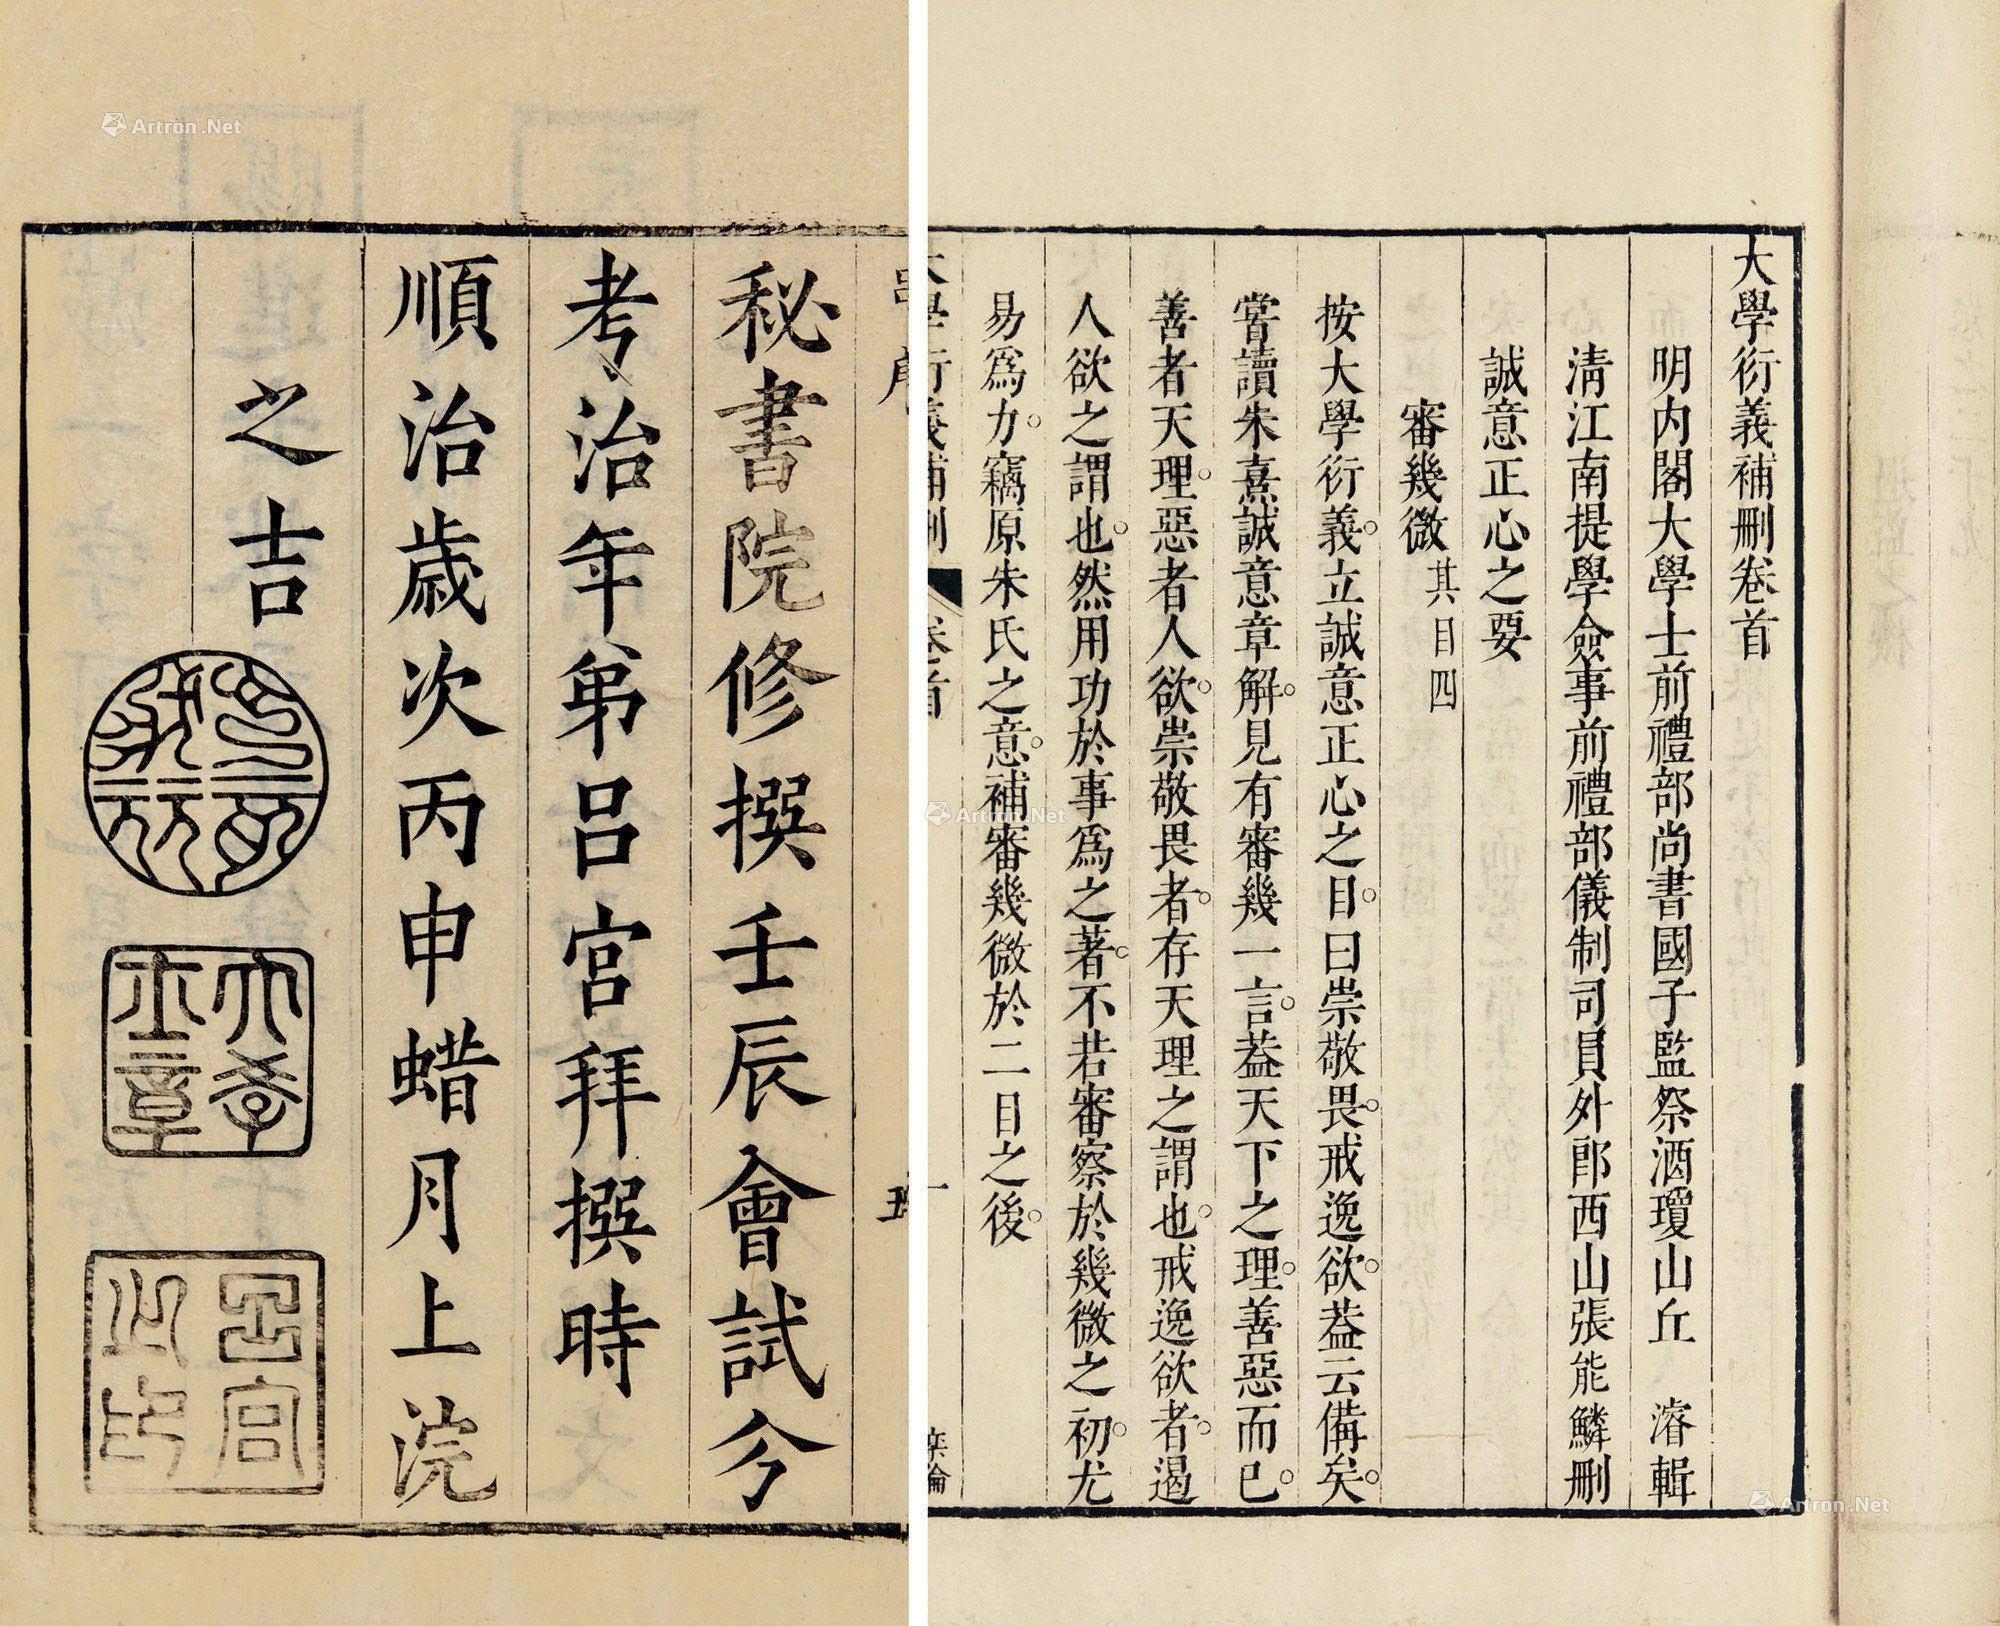 大學衍義補刪卷首
明内閣大學士前禮部尚書國子監祭酒瓊山丘 濬輯
淸江南提學僉事前禮部儀制司員外郎西山張能鱗刪
誠意正心之要
審幾微 其目四
按大學衍義。立誠意正心之目。曰崇敬畏。戒逸欲。葢云備矣。
嘗讀朱熹誠意章解。見有審幾一言。葢天下之理。善惡而已。
善者天理。惡者人欲。崇敬畏者。存天理之謂也。戒逸欲者。遏
人欲之謂也。然用功於事爲之著。不若審察於幾微之初。尤
易爲力。竊原朱氏之意。補審幾微於二目之後。
大學衍義補刪 卷首 一
秘書院修撰壬辰會試分
考治年弟呂宮拜撰時
順治歲次丙申蜡月上浣
之吉
呂宮之印
Artron.Net
Artron.Net
Artron.Net